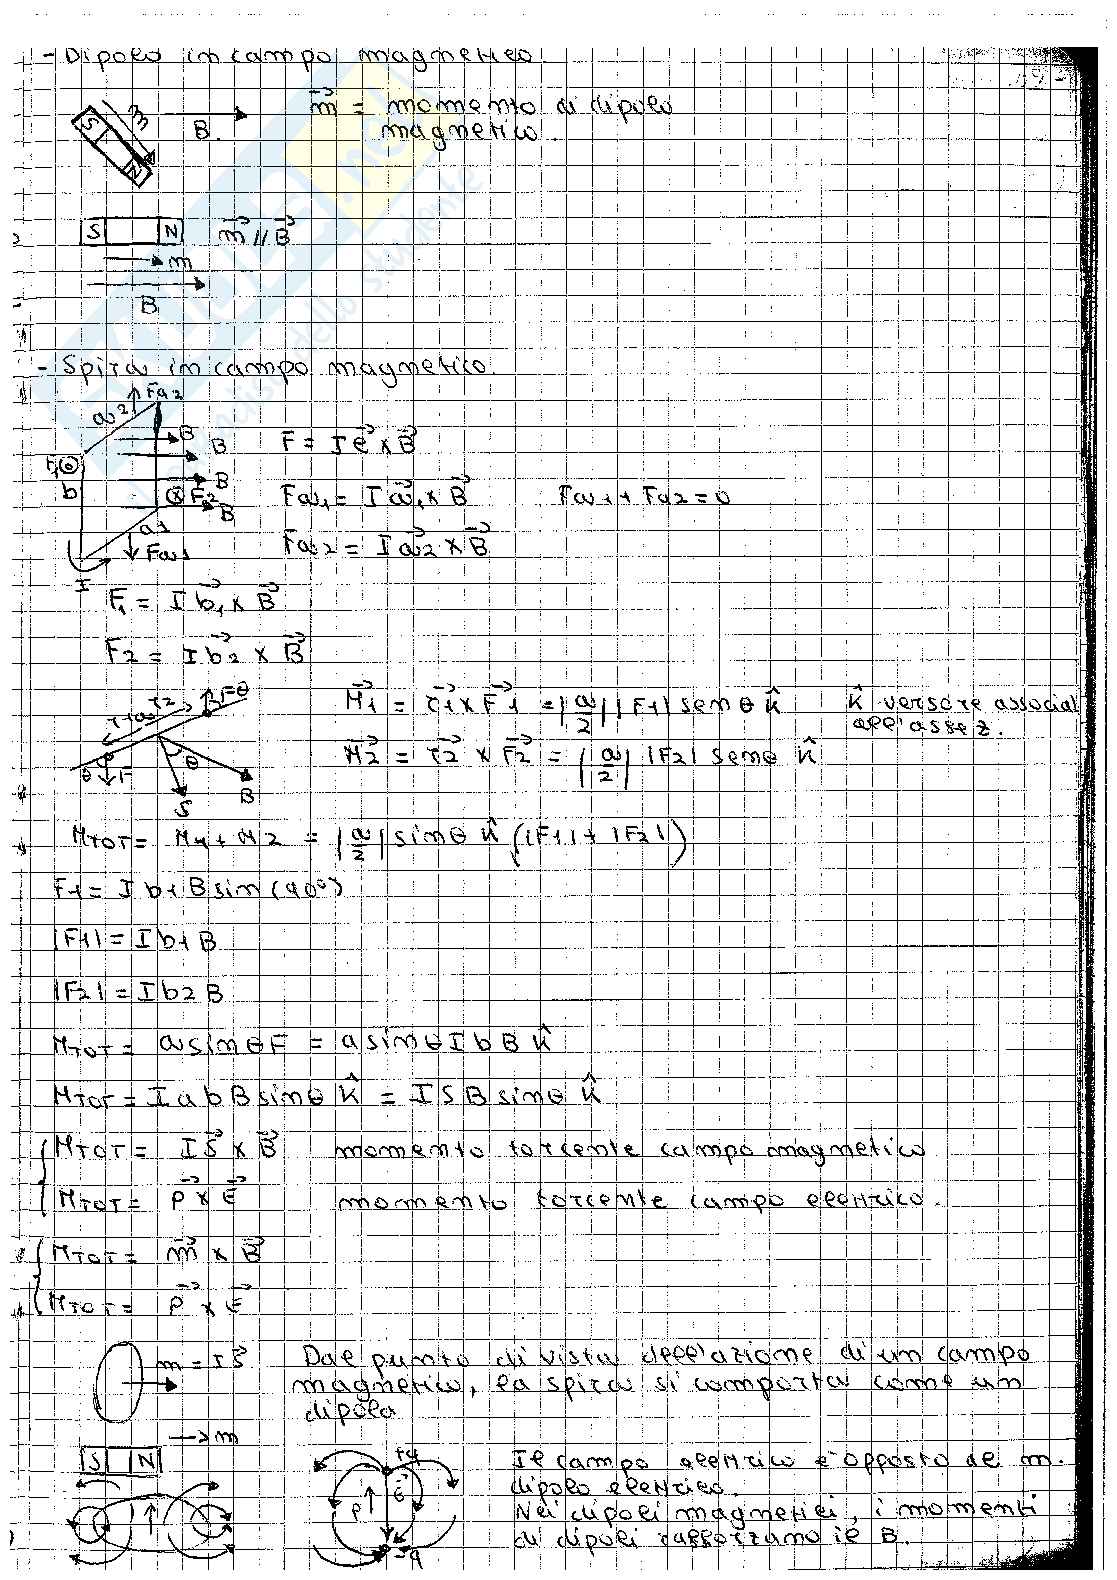 - Dipolo in campo magnetico.
S
m
N
B.
m⃗ = momento di dipolo
magnetico.
S N m⃗ // B⃗
m
B
- Spira in campo magnetico.
Fa2
a2
B
B
B
B
b
F2
a1
Fa1
I
F = I ℓ⃗ × B⃗
Fa1 = I a⃗1 × B⃗ Fa1 + Fa2 = 0
Fa2 = I a⃗2 × B⃗
F1 = I b⃗1 × B⃗
F2 = I b⃗2 × B⃗
r2 F θ
θ F θ
S B
M⃗1 = r⃗1 × F⃗1 = |a/2| |F1| sen θ k̂ k̂ versore associat
all'asse z.
M⃗2 = r⃗2 × F⃗2 = |a/2| |F2| sen θ k̂
MTOT = M1 + M2 = |a/2| sin θ k̂ (|F1| + |F2|)
F1 = I b1 B sin (90°)
|F1| = I b1 B
|F2| = I b2 B
MTOT = a sin θ F = a sin θ I b B k̂
MTOT = I a b B sin θ k̂ = I S B sin θ k̂
MTOT = I S⃗ × B⃗ momento torcente campo magnetico
MTOT = p⃗ × E⃗ momento torcente campo elettrico.
MTOT = m⃗ × B⃗
MTOT = p⃗ × E⃗
m = I S⃗
Dal punto di vista dell'azione di un campo
magnetico, la spira si comporta come un
dipolo
→ m
S N
+q
p E
-q
Il campo elettrico è opposto al m.
dipolo elettrico.
Nei dipoli magnetici, i momenti
di dipoli rafforzano il B.